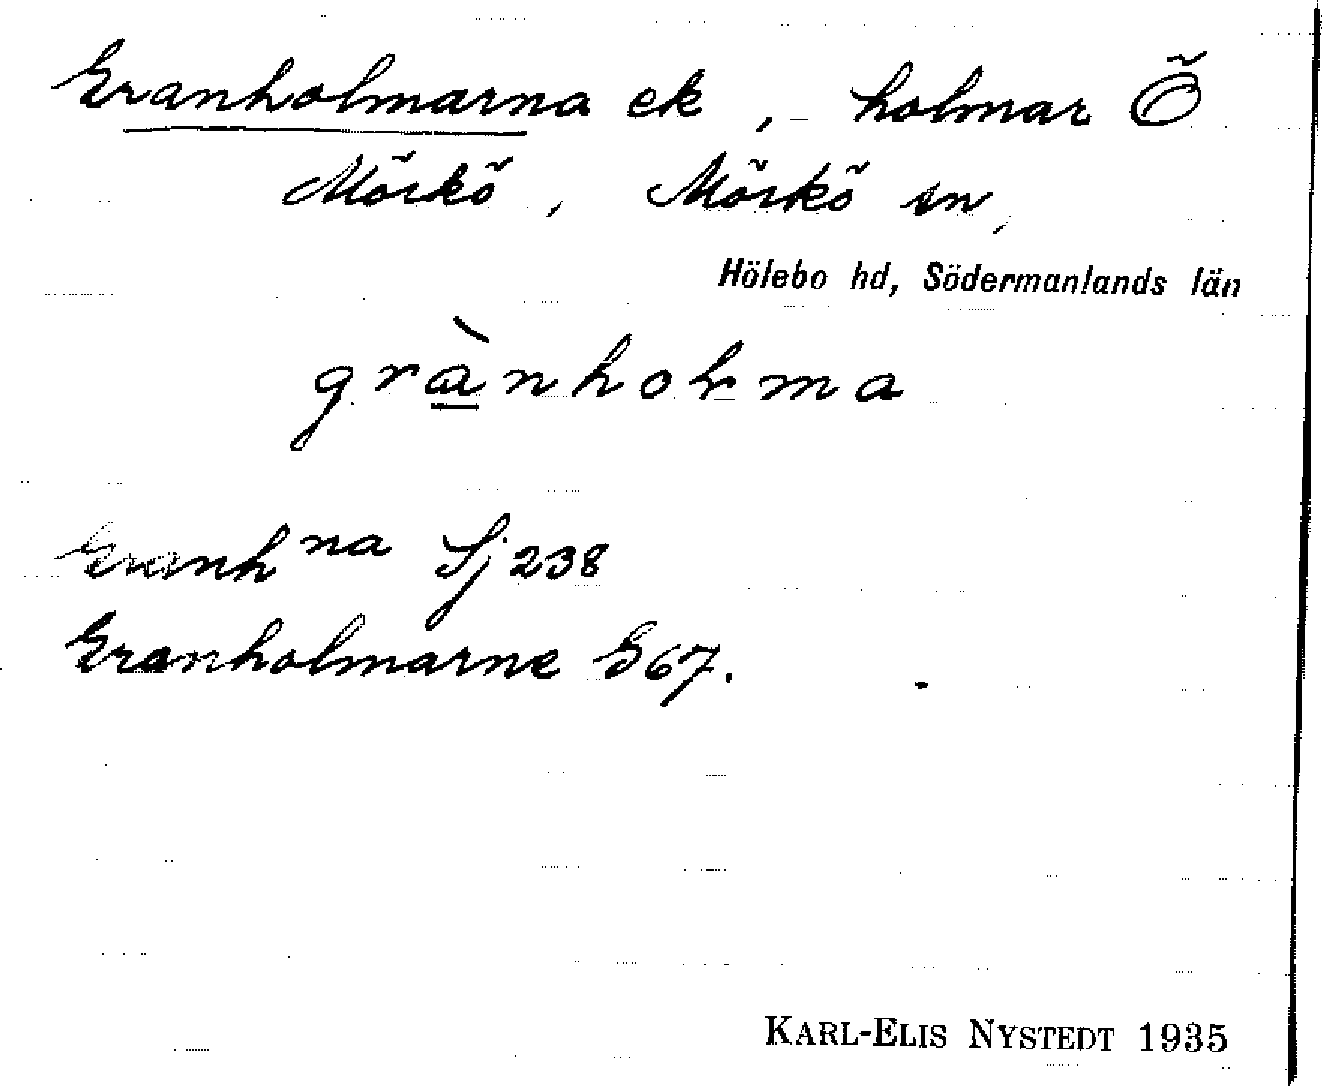 Granholmarna ek, holmar Ö
Mörkö, Mörkö sn,
Hölebo hd, Södermanlands län
grànholma
Granh na Sj 238
Granholmarne G 67.
KARL-ELIS NYSTEDT 1935